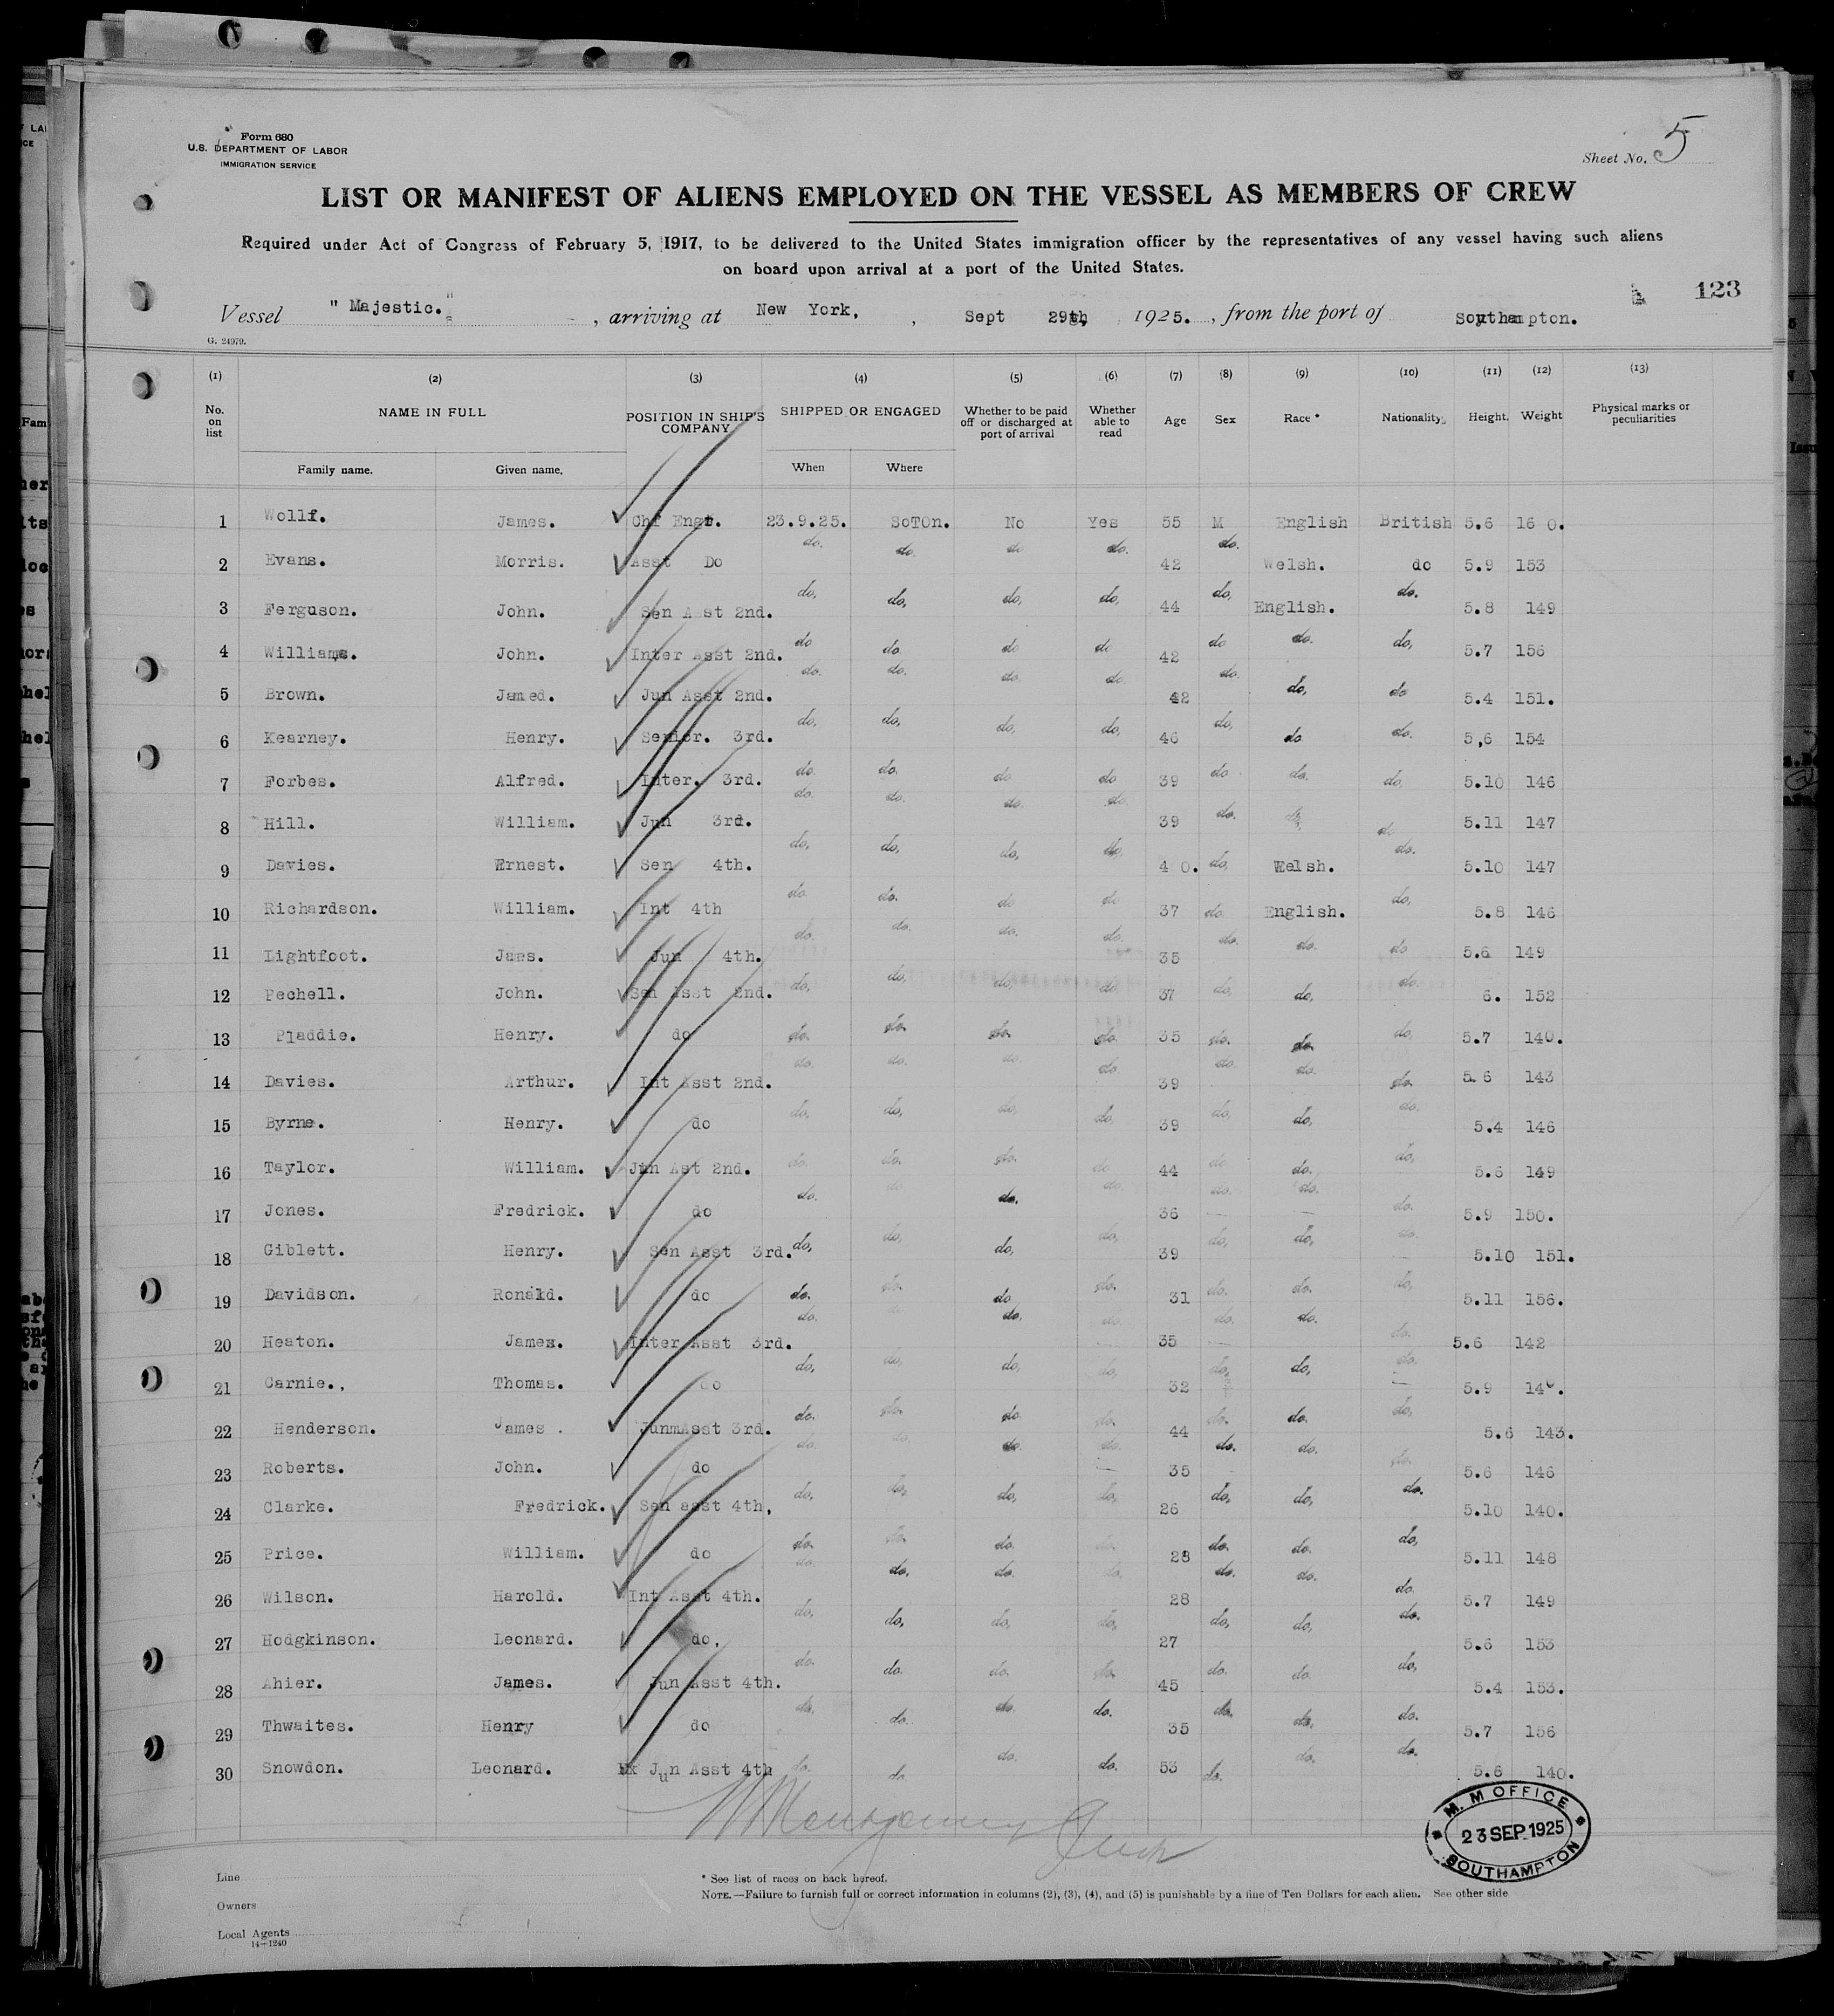 Form 680
U.S. DEPARTMENT OF LABOR
IMMIGRATION SERVICE
Sheet No. 5
LIST OR MANIFEST OF ALIENS EMPLOYED ON THE VESSEL AS MEMBERS OF CREW
Required under Act of Congress of February 5, 1917, to be delivered to the United States immigration officer by the representatives of any vessel having such aliens
on board upon arrival at a port of the United States.
123
Vessel " Majestic. " , arriving at New York, , Sept 29th, 1925. , from the port of Southampton.
G. 24979.
(1) (2) (3) (4) (5) (6) (7) (8) (9) (10) (11) (12) (13)
No. on list NAME IN FULL POSITION IN SHIP'S COMPANY SHIPPED OR ENGAGED Whether to be paid off or discharged at port of arrival Whether able to read Age Sex Race * Nationality Height. Weight Physical marks or peculiarities
Family name. Given name. When Where
1 Wolff. James. Chf Engr. 23.9.25. SoTOn. No Yes 55 M English British 5.6 16 0.
2 Evans. Morris. Asst Do do. do. do do. 42 do. Welsh. do 5.9 153
3 Ferguson. John. Sen A st 2nd. do, do, do, do, 44 do, English. do. 5.8 149
4 Williams. John. Inter Asst 2nd. do do. do do 42 do do. do, 5.7 156
5 Brown. Jamed. Jun Asst 2nd. do. do. do. do. 42 do. do, do 5.4 151.
6 Kearney. Henry. Senior. 3rd. do, do, do, do, 46 do, do do. 5,6 154
7 Forbes. Alfred. Inter. 3rd. do. do. do do 39 do do. do, 5.10 146
8 Hill. William. Jun 3rd. do. do. do. do. 39 do. do, do 5.11 147
9 Davies. Ernest. Sen 4th. do, do, do, do, 4 0. do, Welsh. do. 5.10 147
10 Richardson. William. Int 4th do. do. do do 37 do. English. do, 5.8 146
11 Lightfoot. Jaes. Jun 4th. do. do. do. do. 35 do. do. do 5.6 149
12 Pechell. John. Sen Asst 2nd. do, do, do, do 37 do, do, do. 6. 152
13 Pladdie. Henry. do do. do. do. do. 35 do. do. do, 5.7 140.
14 Davies. Arthur. Int Asst 2nd. do. do. do. do. 39 do. do. do. 5.6 143
15 Byrne. Henry. do do, do, do, do, 39 do, do, do. 5.4 146
16 Taylor. William. Jun Ast 2nd. do. do. do. do 44 do. do. do, 5.6 149
17 Jones. Fredrick. do do. do do. do. 36 do. do. do. 5.9 150.
18 Giblett. Henry. Sen Asst 3rd. do, do, do, do, 39 do, do, do. 5.10 151.
19 Davidson. Ronald. do do. do. do do. 31 do. do. do, 5.11 156.
20 Heaton. James. Inter Asst 3rd. do. do do. do. 35 do. do. do. 5.6 142
21 Carnie., Thomas. do do, do, do, do, 32 do, do, do. 5.9 14 .
22 Henderson. James . Junm Asst 3rd. do. do. do. do. 44 do. do. do, 5.6 143.
23 Roberts. John. do do. do. do. do. 35 do. do. do. 5.6 146
24 Clarke. Fredrick. Sen asst 4th, do, do, do, do, 26 do, do, do. 5.10 140.
25 Price. William. do do. do. do. do. 28 do. do. do, 5.11 148
26 Wilson. Harold. Int Asst 4th. do. do, do. do. 28 do. do. do. 5.7 149
27 Hodgkinson. Leonard. do, do, do, do, do, 27 do, do, do. 5.6 153
28 Ahier. James. Jun Asst 4th. do. do. do. do. 45 do. do. do, 5.4 153.
29 Thwaites. Henry do do. do. do. do. 35 do. do. do. 5.7 156
30 Snowdon. Leonard. Jun Asst 4th do. do. do. do. 53 do. do. do. 5.6 140.
M. M OFFICE
23 SEP. 1925
SOUTHAMPTON
Line
* See list of races on back hereof.
NOTE.—Failure to furnish full or correct information in columns (2), (3), (4), and (5) is punishable by a fine of Ten Dollars for each alien. See other side
Owners
Local Agents
14—1240